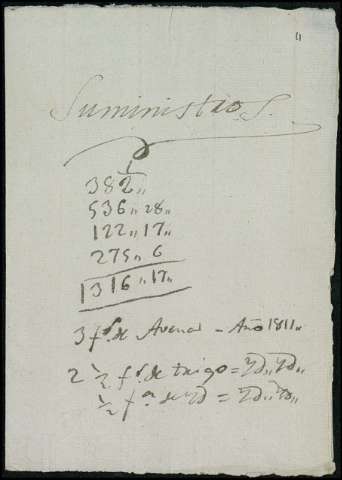 Suministros.
382,,
536,,28,,
122,,17,,
275,,6
1316,,17,,
3 f.s de Avena - Año 1811,,
2 ½ f.s de trigo = Yd,, Yd,,
½ f.a de yd = Yd,, Yd,,